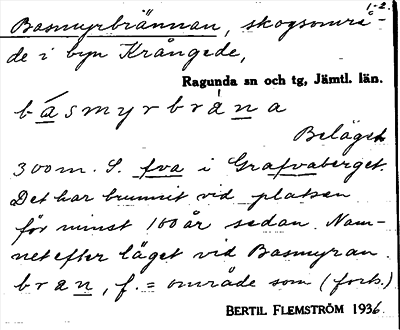 1-2.
Basmyrbrännan, skogsområ-
de i byn Krångede,
Ragunda sn och tg, Jämtl. län.
básmyrbràna
Beläget
300m. S. fva i Grafvaberget.
Det har brunnit vid platsen
för minst 100 år sedan. Nam-
net efter läget vid Basmyran.
bran, f. = område som (forts.)
BERTIL FLEMSTRÖM 1936.